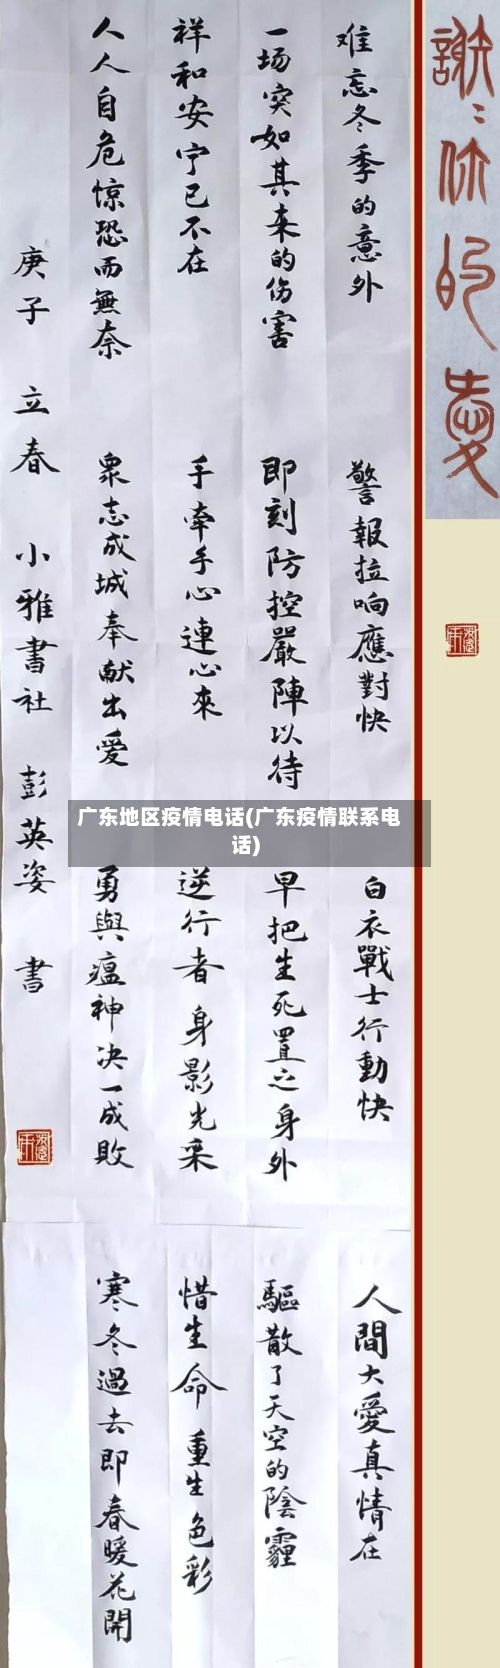 谢谢你的爱
难忘冬季的意外
一场突如其来的伤害
祥和安宁已不在
人人自危惊恐而無奈
警報拉响應對快
即刻防控嚴陣以待
手牵手心連心來
衆志成城奉献出愛
白衣戰士行動快
早把生死置之身外
逆行者身影光采
勇與瘟神决一成敗
人間大愛真情在
驅散了天空的陰霾
惜生命重生色彩
寒冬過去即春暖花開
庚子 立春 小雅書社 彭英姿 書
广东地区疫情电话(广东疫情联系电
话)